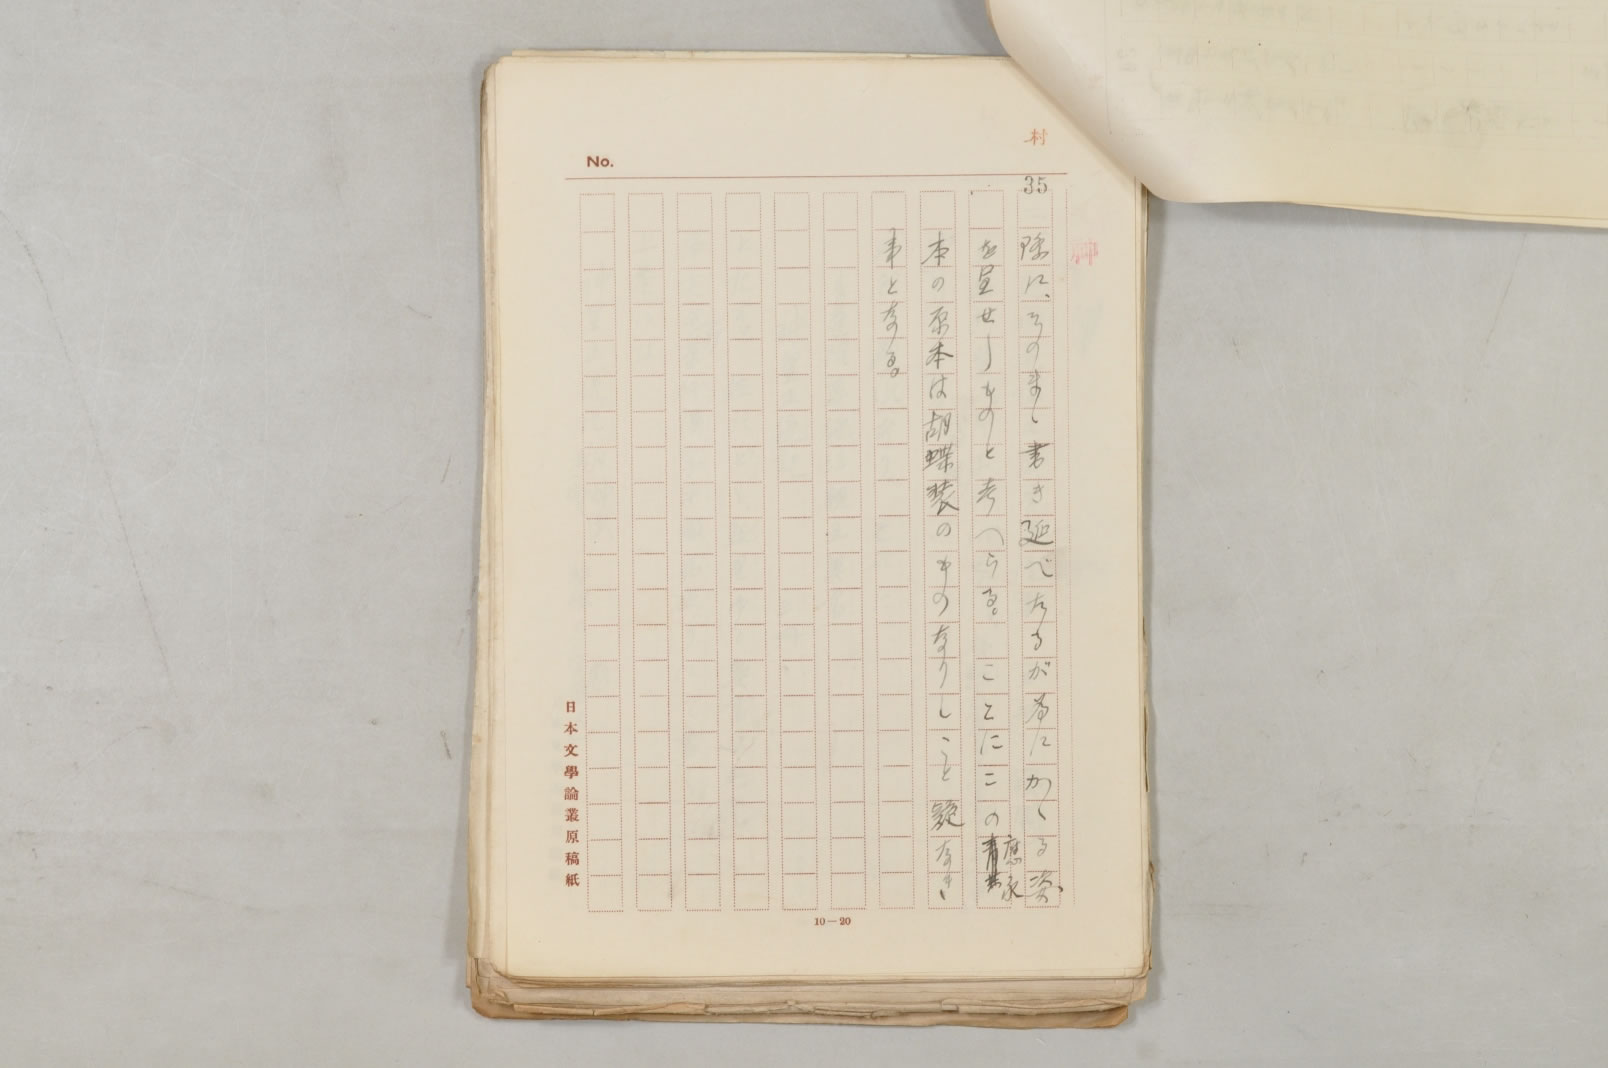 村
No.
35
際に、そのまゝ書き延べたるが為にかゝる姿、
を呈せしものと考へうる。 ことにこの應永
本の原本は胡蝶装のものなりしこと疑なき
事となる。
日本文學論叢原稿紙
10—20